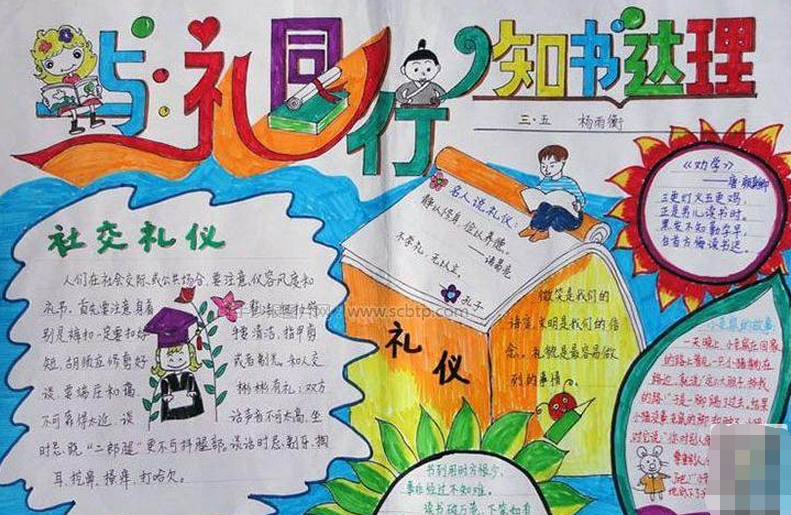 与礼同行
知书达理
三·五 杨雨衡
社交礼仪
人们在社会交际或公共场合,要注意仪容风度和
礼节。首先要注意身着
整洁
别是裤和一定要扣好
要清洁,指甲剪
短,胡须应修剪好
或者剃光。和人交
谈,要端庄和蔼
彬彬有礼;双方
不可靠得太近,谈
话声音不可太高,坐
时忌跷“二郎腿”更不可抖腿部,谈话时忌:剔牙、掏
耳、挖鼻、搔痒、打哈欠。
www.scbtp.com
名人说礼仪:
静以修身,俭以养德。
诸葛亮
不学礼,无以立。
孔子
礼仪
微笑是我们的
语言,文明是我们的信
念。礼貌是最容易做
到的事情。
《劝学》
——唐·颜真卿
三更灯火五更鸡,
正是男儿读书时。
黑发不知勤学早,
白首方悔读书迟。
小老鼠的故事
一天晚上,小老鼠在回家
的路上看见一只小猫躺在
路边
的路!”于是一脚踢了过去,结果
对它说:“你对别人
书到用时方恨少,
事非经过不知难。
读书破万卷,下笔如有